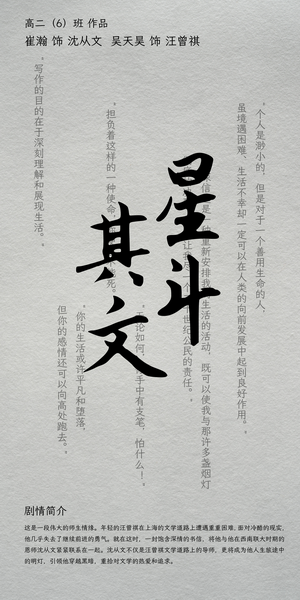 高二（6）班 作品
崔瀚 饰 沈从文  吴天昊 饰 汪曾祺
星斗
其文
“个人是渺小的，但是对于一个善用生命的人，
虽境遇困难、生活不幸却一定可以在人类的向前发展中起到良好作用。”
一种重新安排我 生活的活动，既可以使我与那许多盏烟灯
世纪公民的责任。”
无论如何， 手中有支笔，怕什么！”
“担负着这样的一种使命 死。
“你的生活或许平凡和堕落，
但你的感情还可以向高处跑去。”
“写作的目的在于深刻理解和展现生活。”
剧情简介
这是一段伟大的师生情缘。年轻的汪曾祺在上海的文学道路上遭遇重重困难，面对冷酷的现实，
他几乎失去了继续前进的勇气。就在这时，一封饱含深情的书信，将他与他在西南联大时期的
恩师沈从文紧紧联系在一起。沈从文不仅是汪曾祺文学道路上的导师，更将成为他人生旅途中
的明灯，引领他穿越黑暗，重拾对文学的热爱和追求。